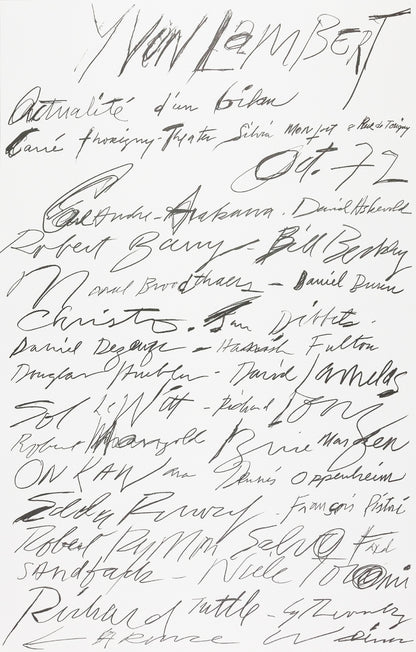 YVON LAMBERT
Actualité d'un bilan
Carré Thorigny Theater Silvia Monfort 8 Rue de Thorigny
Oct. 72
Carl Andre - Arakawa . David Askevold
Robert Barry - Bill Beckley
Marcel Broodthaers - Daniel Buren
Christo . Jan Dibbets .
Daniel Dezeuze - Hamish Fulton
Douglas Huebler - David Lamelas
Sol LeWitt - Richard Long
Robert Mangold Brice Marden
ON KAWara Dennis Oppenheim
Edda Renouf . François Ristori
Robert Ryman Salvo Fred
SANdback - Niele Toroni
Richard Tuttle - Cy Twombly